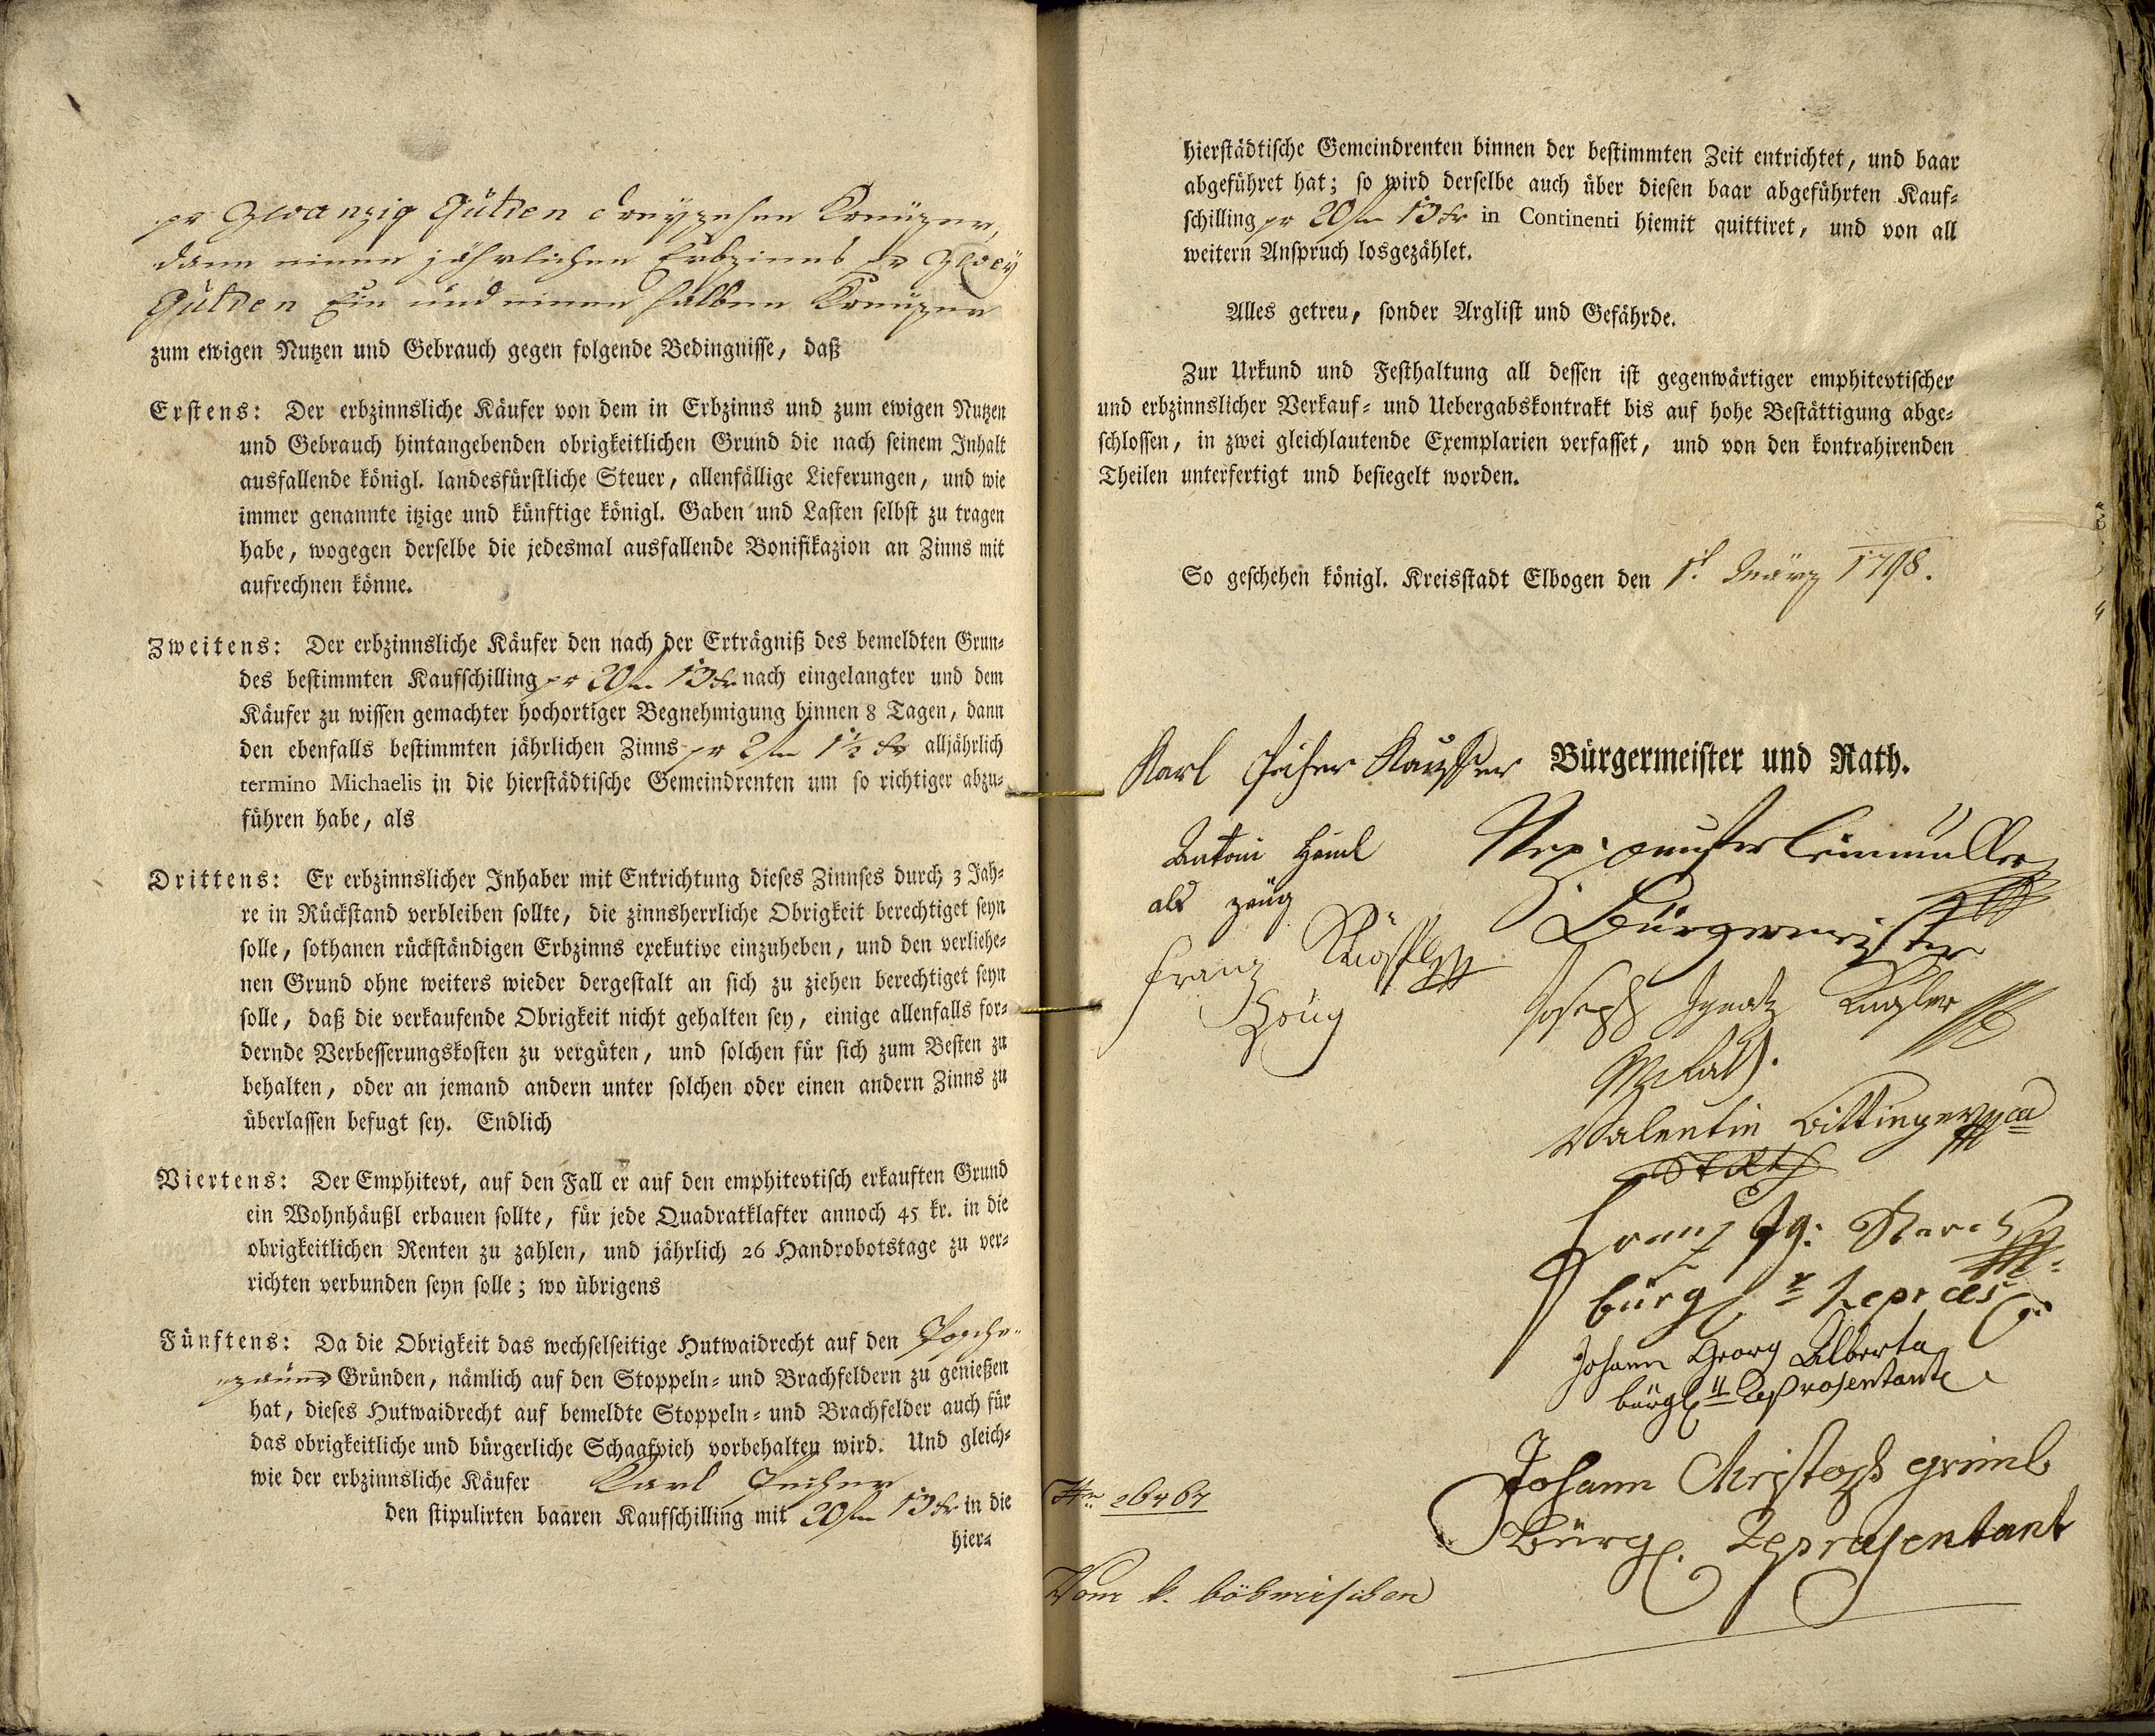 pr Zwanzig Gulden dreyzehen Kreuzer,
dann einen jährlichen Erbzinns pr Zwey
Gulden Ein und einen halben Kreuzer
zum ewigen Nutzen und Gebrauch gegen folgende Bedingnisse, daß
Erstens: Der erbzinnsliche Käufer von dem in Erbzinns und zum ewigen Nutzen
und Gebrauch hintangebenden obrigkeitlichen Grund die nach seinem Inhalt
ausfallende königl. landesfürstliche Steuer, allenfällige Lieferungen, und wie
immer genannte itzige und künftige königl. Gaben und Lasten selbst zu tragen
habe, wogegen derselbe die jedesmal ausfallende Bonifikazion an Zinns mit
aufrechnen könne.
Zweitens: Der erbzinnsliche Käufer den nach der Erträgniß des bemeldten Grun-
des bestimmten Kaufschilling pr 20 fl 13 kr nach eingelangter und dem
Käufer zu wissen gemachter hochortiger Begnehmigung binnen 8 Tagen, dann
den ebenfalls bestimmten jährlichen Zinns pr 2 fl 1½ kr alljährlich
termino Michaelis in die hierstädtische Gemeindrenten um so richtiger abzu-
führen habe, als
Drittens: Er erbzinnslicher Inhaber mit Entrichtung dieses Zinnses durch 3 Jah-
re in Rückstand verbleiben sollte, die zinnsherrliche Obrigkeit berechtiget seyn
solle, sothanen rückständigen Erbzinns exekutive einzuheben, und den verliehe-
nen Grund ohne weiters wieder dergestalt an sich zu ziehen berechtiget seyn
solle, daß die verkaufende Obrigkeit nicht gehalten sey, einige allenfalls for-
dernde Verbesserungskosten zu vergüten, und solchen für sich zum Besten zu
behalten, oder an jemand andern unter solchen oder einen andern Zinns zu
überlassen befugt sey. Endlich
Viertens: Der Emphitevt, auf den Fall er auf den emphitevtisch erkauften Grund
ein Wohnhäußl erbauen sollte, für jede Quadratklafter annoch 45 kr. in die
obrigkeitlichen Renten zu zahlen, und jährlich 26 Handrobotstage zu ver-
richten verbunden seyn solle; wo übrigens
Fünftens: Da die Obrigkeit das wechselseitige Hutwaidrecht auf den
Gründen, nämlich auf den Stoppeln- und Brachfeldern zu genießen
hat, dieses Hutwaidrecht auf bemeldte Stoppeln- und Brachfelder auch für
das obrigkeitliche und bürgerliche Schaafvieh vorbehalten wird. Und gleich-
wie der erbzinnsliche Käufer Karl
den stipulirten baaren Kaufschilling mit 20 fl 13 kr in die
hier-
hierstädtische Gemeindrenten binnen der bestimmten Zeit entrichtet, und baar
abgeführet hat; so wird derselbe auch über diesen baar abgeführten Kauf-
schilling pr 20 fl 13 kr in Continenti hiemit quittiret, und von all
weitern Anspruch losgezählet.
Alles getreu, sonder Arglist und Gefährde.
Zur Urkund und Festhaltung all dessen ist gegenwärtiger emphitevtischer
und erbzinnslicher Verkauf- und Uebergabskontrakt bis auf hohe Bestättigung abge-
schlossen, in zwei gleichlautende Exemplarien verfasset, und von den kontrahirenden
Theilen unterfertigt und besiegelt worden.
So geschehen königl. Kreisstadt Elbogen den 1t. März 1798.
Karl Käuffer Bürgermeister und Rath.
Antoni
als zeug
Bürgermeister
Franz
Zeug
Joseph Ignatz
Valentin
Franz Ig:
bürgl. Repræs
Johann Georg Alberta
bürgl. Reprosentant
Johann Christoph
Bürgl. Representant
Vom k. böhmischen